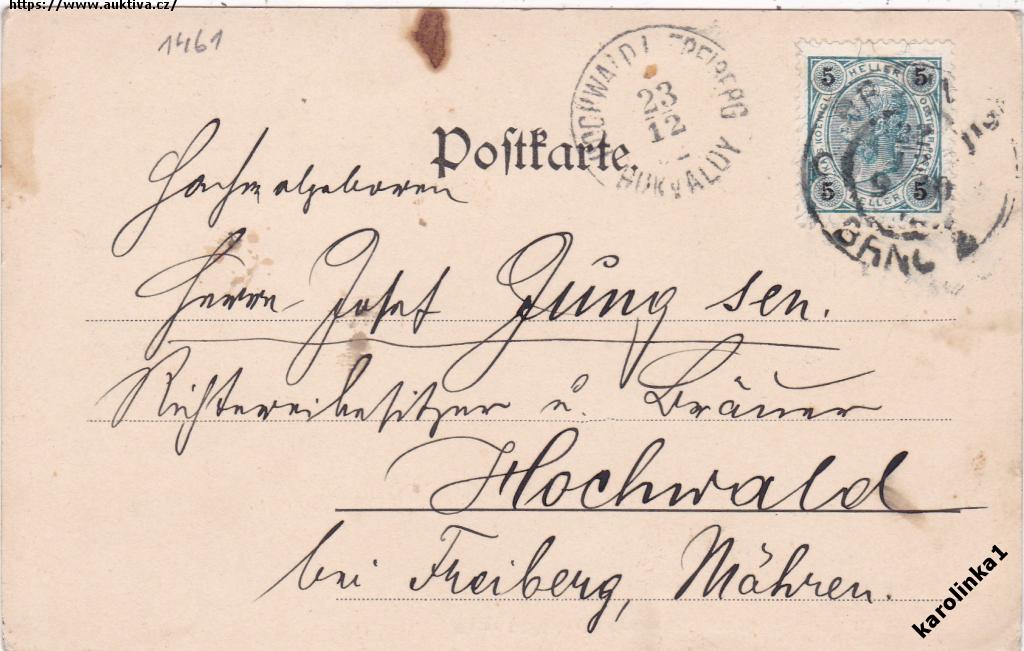 https://www.auktiva.cz/
1461
HOCHWALD FREIBERG
23
12
HUKVALDY
5 HELLER 5
5 HELLER 5
BRNO
Postkarte.
Hochwolgeboren
Herrn Josef Jung sen.
Richtereibesitzer u. Bräuer
Hochwald
bei Freiberg, Mähren.
karolinka1